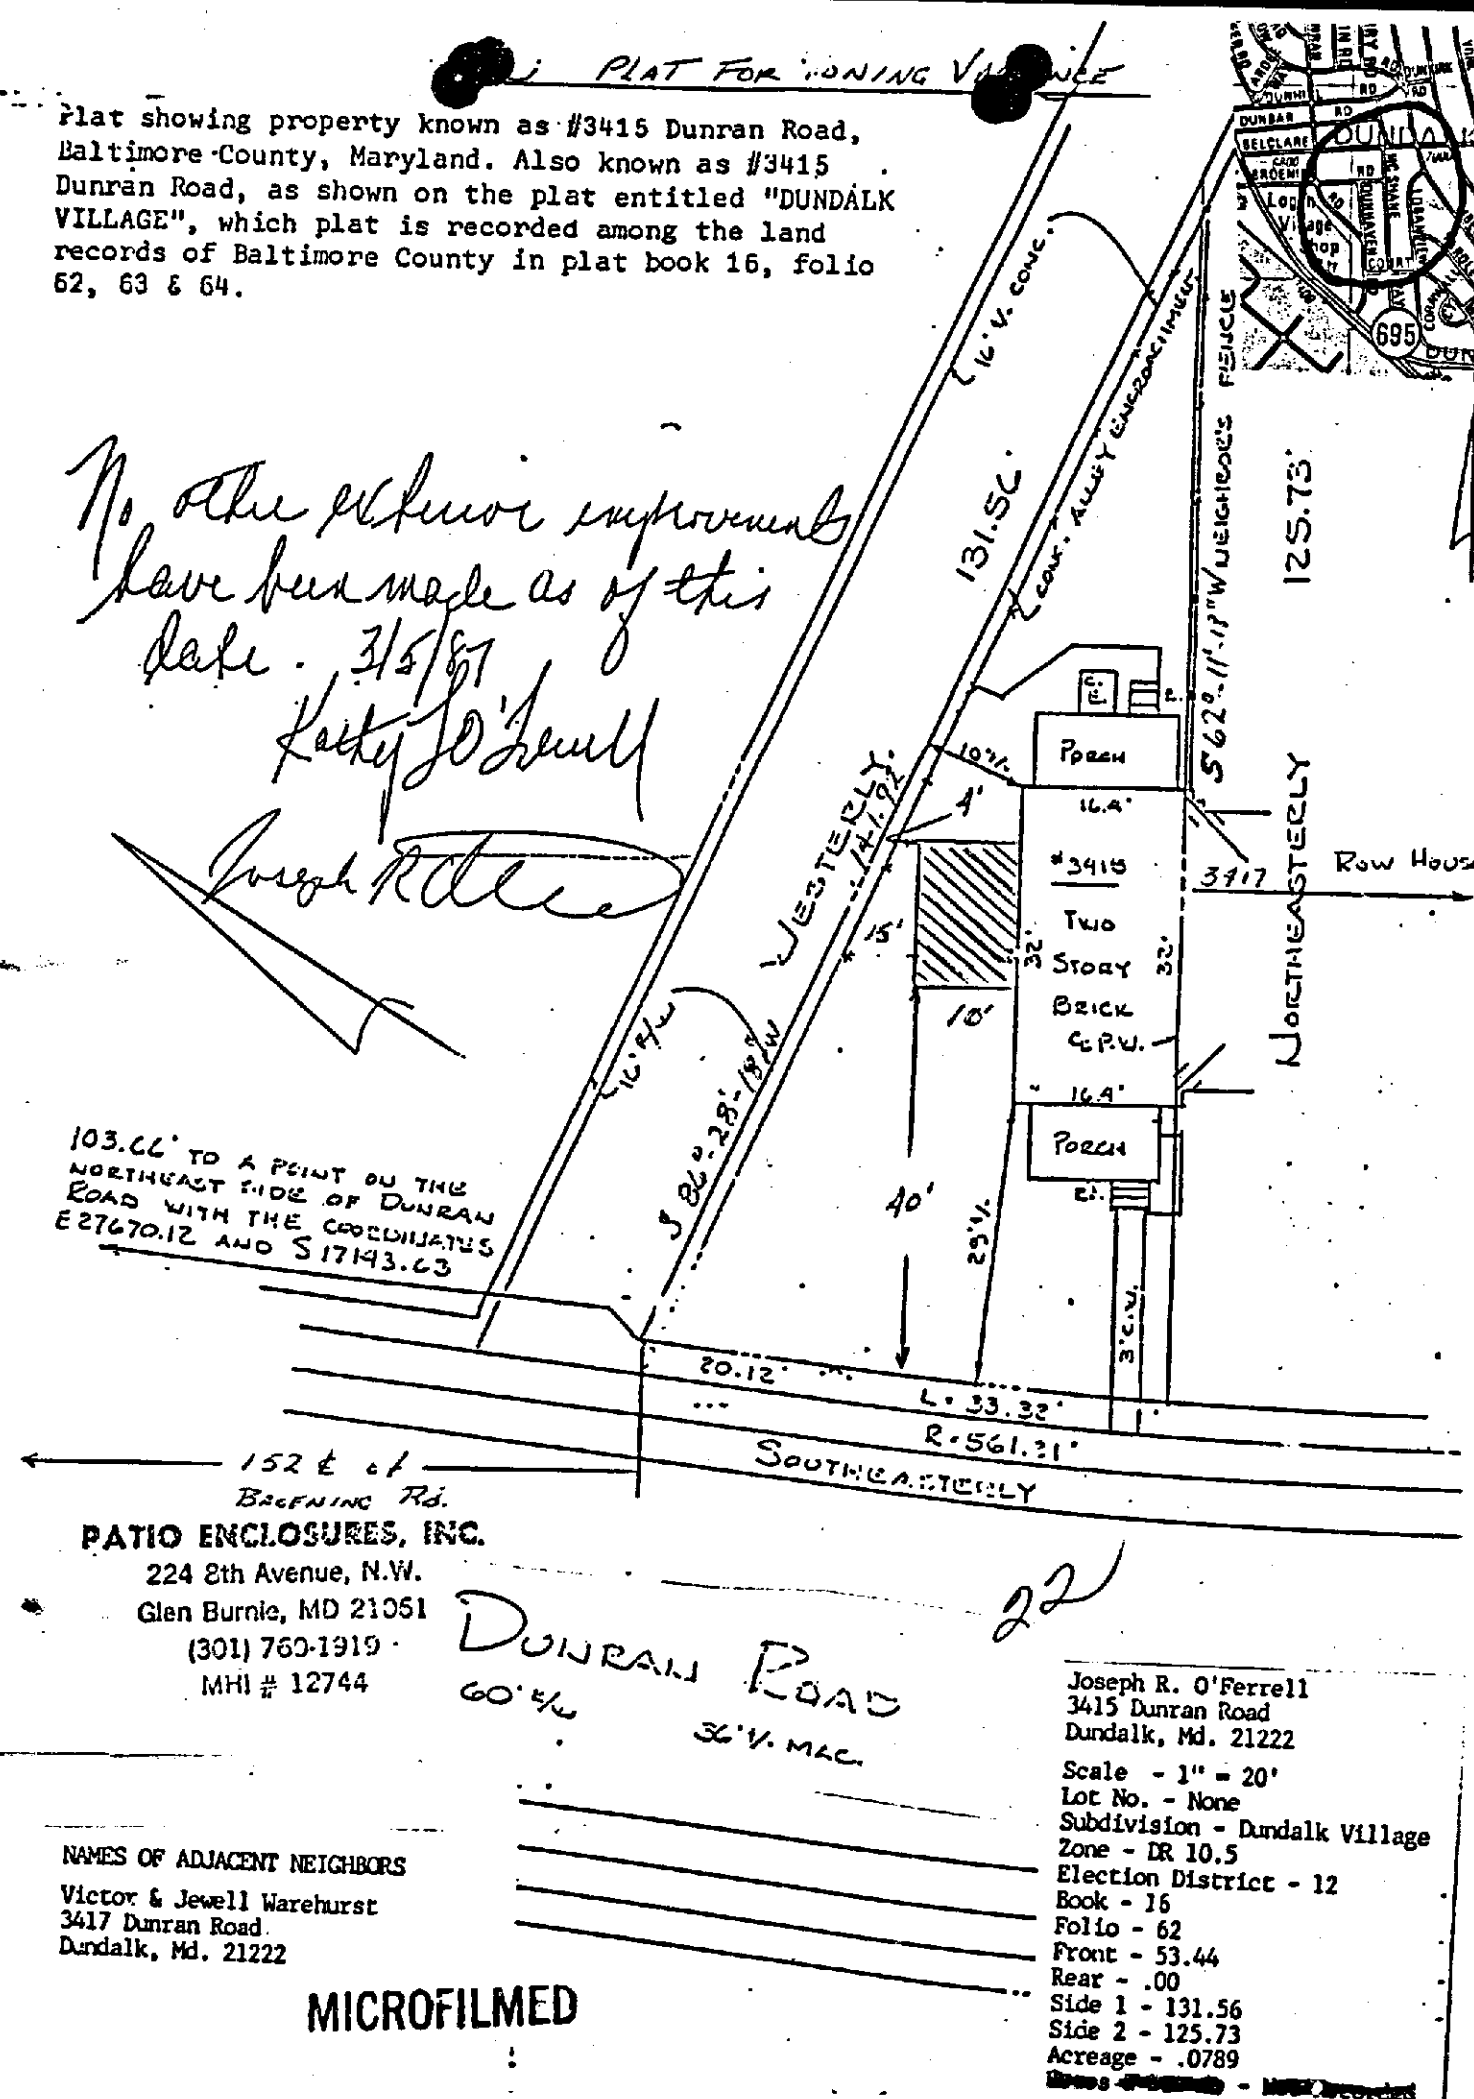 PLAT FOR
Plat showing property known as #3415 Dunran Road,
Baltimore County, Maryland. Also known as #3415
Dunran Road, as shown on the plat entitled "DUNDALK
VILLAGE", which plat is recorded among the land
records of Baltimore County in plat book 16, folio
62, 63 & 64.
DUNBAR RD
BELCLARE
695
No other exterior improvements
have been made as of this
date. 3/5/87
Joseph R
16' V. CONC.
131.56'
CONC. ALLEY ENCROACHMENT
NEIGHBOR'S FENCE
125.73'
NORTHEASTERLY
PORCH
16.4'
4'
#3415
TWO
STORY
BRICK
32'
32'
15'
10'
16.4'
PORCH
3417
ROW HOUSE
16' R/W
S 86°-28'-18" W
103.66' TO A POINT ON THE
NORTHEAST SIDE OF DUNRAN
ROAD WITH THE COORDINATES
E 27670.12 AND S 17143.63
40'
3' C.W.
20.12'
L = 33.32'
R = 561.31'
SOUTHEASTERLY
PATIO ENCLOSURES, INC.
224 8th Avenue, N.W.
Glen Burnie, MD 21061
(301) 760-1919
MHI # 12744
22
DUNRAN ROAD
60' R/W
36' +/- MAC.
Joseph R. O'Ferrell
3415 Dunran Road
Dundalk, Md. 21222
Scale - 1" = 20'
Lot No. - None
Subdivision - Dundalk Village
Zone - DR 10.5
Election District - 12
Book - 16
Folio - 62
Front - 53.44
Rear - .00
Side 1 - 131.56
Side 2 - 125.73
Acreage - .0789
NAMES OF ADJACENT NEIGHBORS
Victor & Jewell Warehurst
3417 Dunran Road
Dundalk, Md. 21222
MICROFILMED